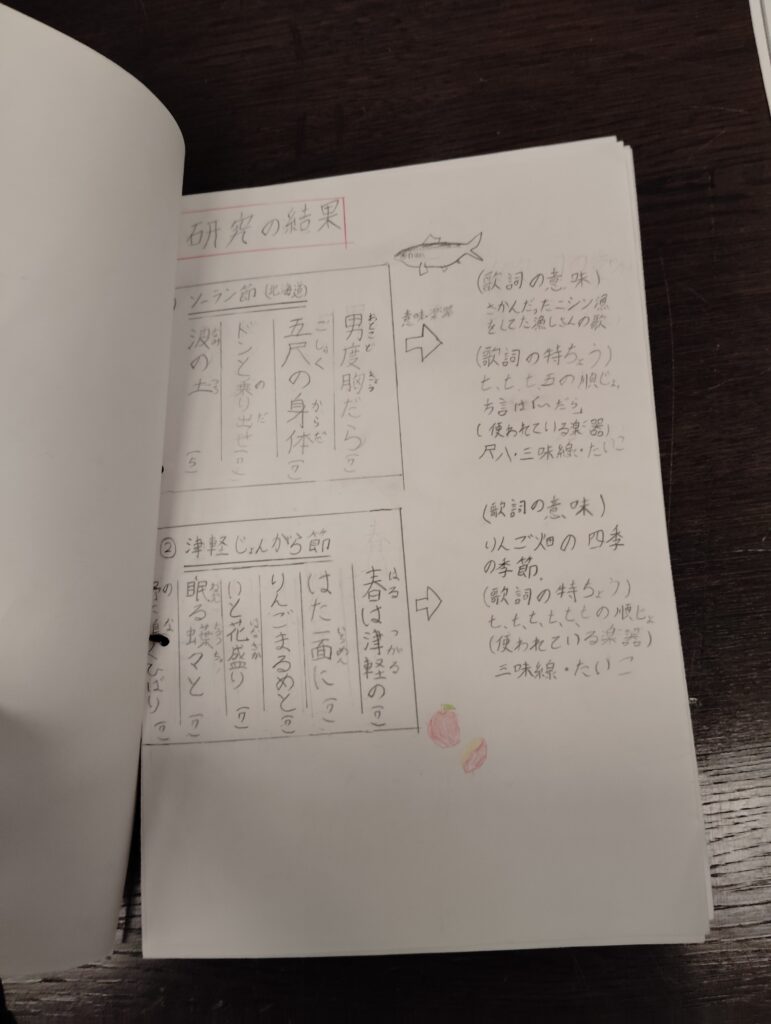 研究の結果
ソーラン節(北海道)
男度胸だら(7)
五尺の身体(7)
ドンと乗り出せ(7)
波の土(5)
意味・楽器
(歌詞の意味)
さかんだったニシン漁
をしてた漁しさんの歌
(歌詞の特ちょう)
七、七、七、五の順じょ
方言は「〜だら」
(使われている楽器)
尺八・三味線・たいこ
② 津軽じょんがら節
春は津軽の(7)
はた一面に(7)
りんごまるめと(7)
いと花盛り(7)
眠る蝶々と(7)
ひばり(7)
(歌詞の意味)
りんご畑の四季
の季節
(歌詞の特ちょう)
七、七、七、七、七、七の順じょ
(使われている楽器)
三味線・たいこ